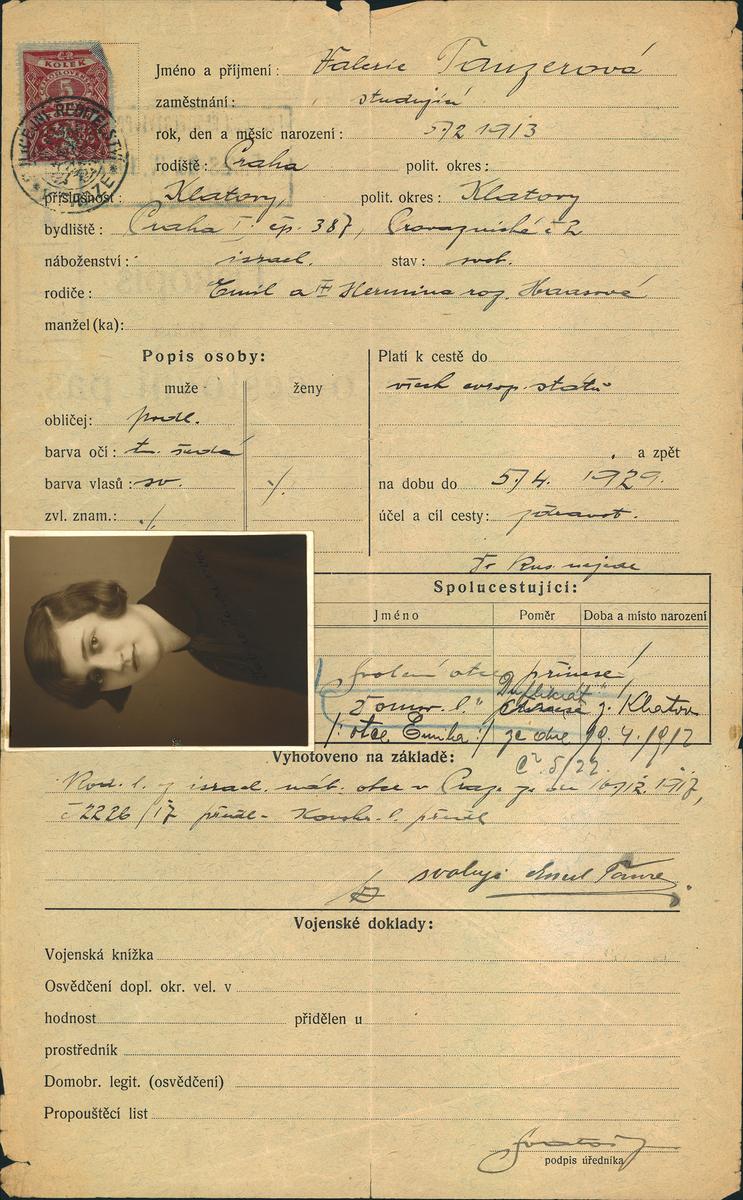 KOLEK
5
Jméno a příjmení : Valerie Tanzerová
zaměstnání : studující
rok, den a měsíc narození : 5/2 1913
rodiště : Praha polit. okres :
příslušnost : Klatovy, polit. okres : Klatovy
bydliště : Praha I. čp. 387, Provaznická č 2
náboženství : israel. stav : svob.
rodiče : Emil a Hermina roz. Haasová
manžel (ka):
Popis osoby:
muže ženy
obličej: podl.
barva očí : tm. šedá
barva vlasů : sv. ·/.
zvl. znam.: ·/.
Platí k cestě do
všech evrop. států
, a zpět
na dobu do 5/4. 1929.
účel a cíl cesty: zdravot.
Spolucestující:
Jméno Poměr Doba a místo narození
Svolení otce přinese
Duplikát
Domov. l. z. Klatov
otce Emila ze dne 1912
Vyhotoveno na základě:
č. 5/22
Rod. l. israel. náb. obce v Praze ze dne 1917,
č 2226/17 předl. l. předl
svoluji Emil
Vojenské doklady:
Vojenská knížka
Osvědčení dopl. okr. vel. v
hodnost přidělen u
prostředník
Domobr. legit. (osvědčení)
Propouštěcí list
podpis úředníka